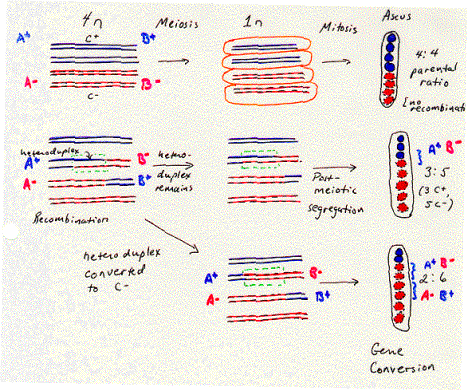 4n
Meiosis
1n
Mitosis
Ascus
A+
C+
B+
A-
C-
B-
4:4
parental
ratio
(no
recombination
heteroduplex
A+
B-
A-
B+
Recombination
hetero-
duplex
remains
Post-
meiotic
segregation
A+ B-
3:5
(3 C+,
5 C-)
heteroduplex
converted
to
C-
A+
B-
A-
B+
A+ B-
2:6
A- B+
Gene
Conversion